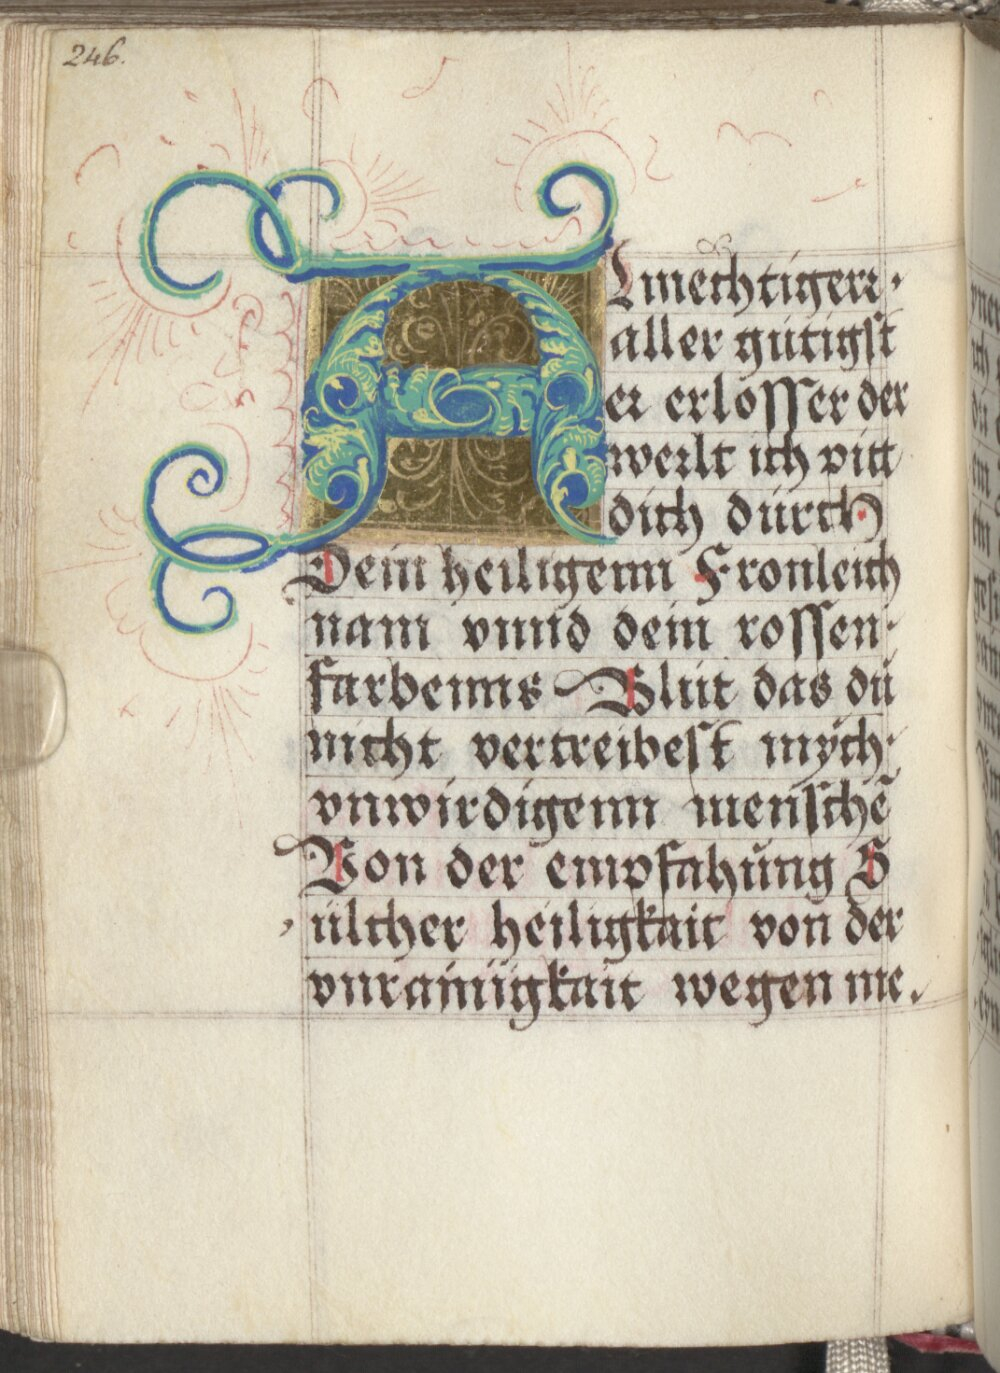 246.
Almechtigerr.
aller gütigst
er erlosser der
werlt ich pitt
dich dürch
Dein heiligenn Fronleich
nam vnnd dein rossen
farbenns Blüt das dü
nicht vertreibest mÿch
vnwirdigenn menschē
Von der empfahüng S
ülcher heiligkait von der
vnrainiigkait wegen me.